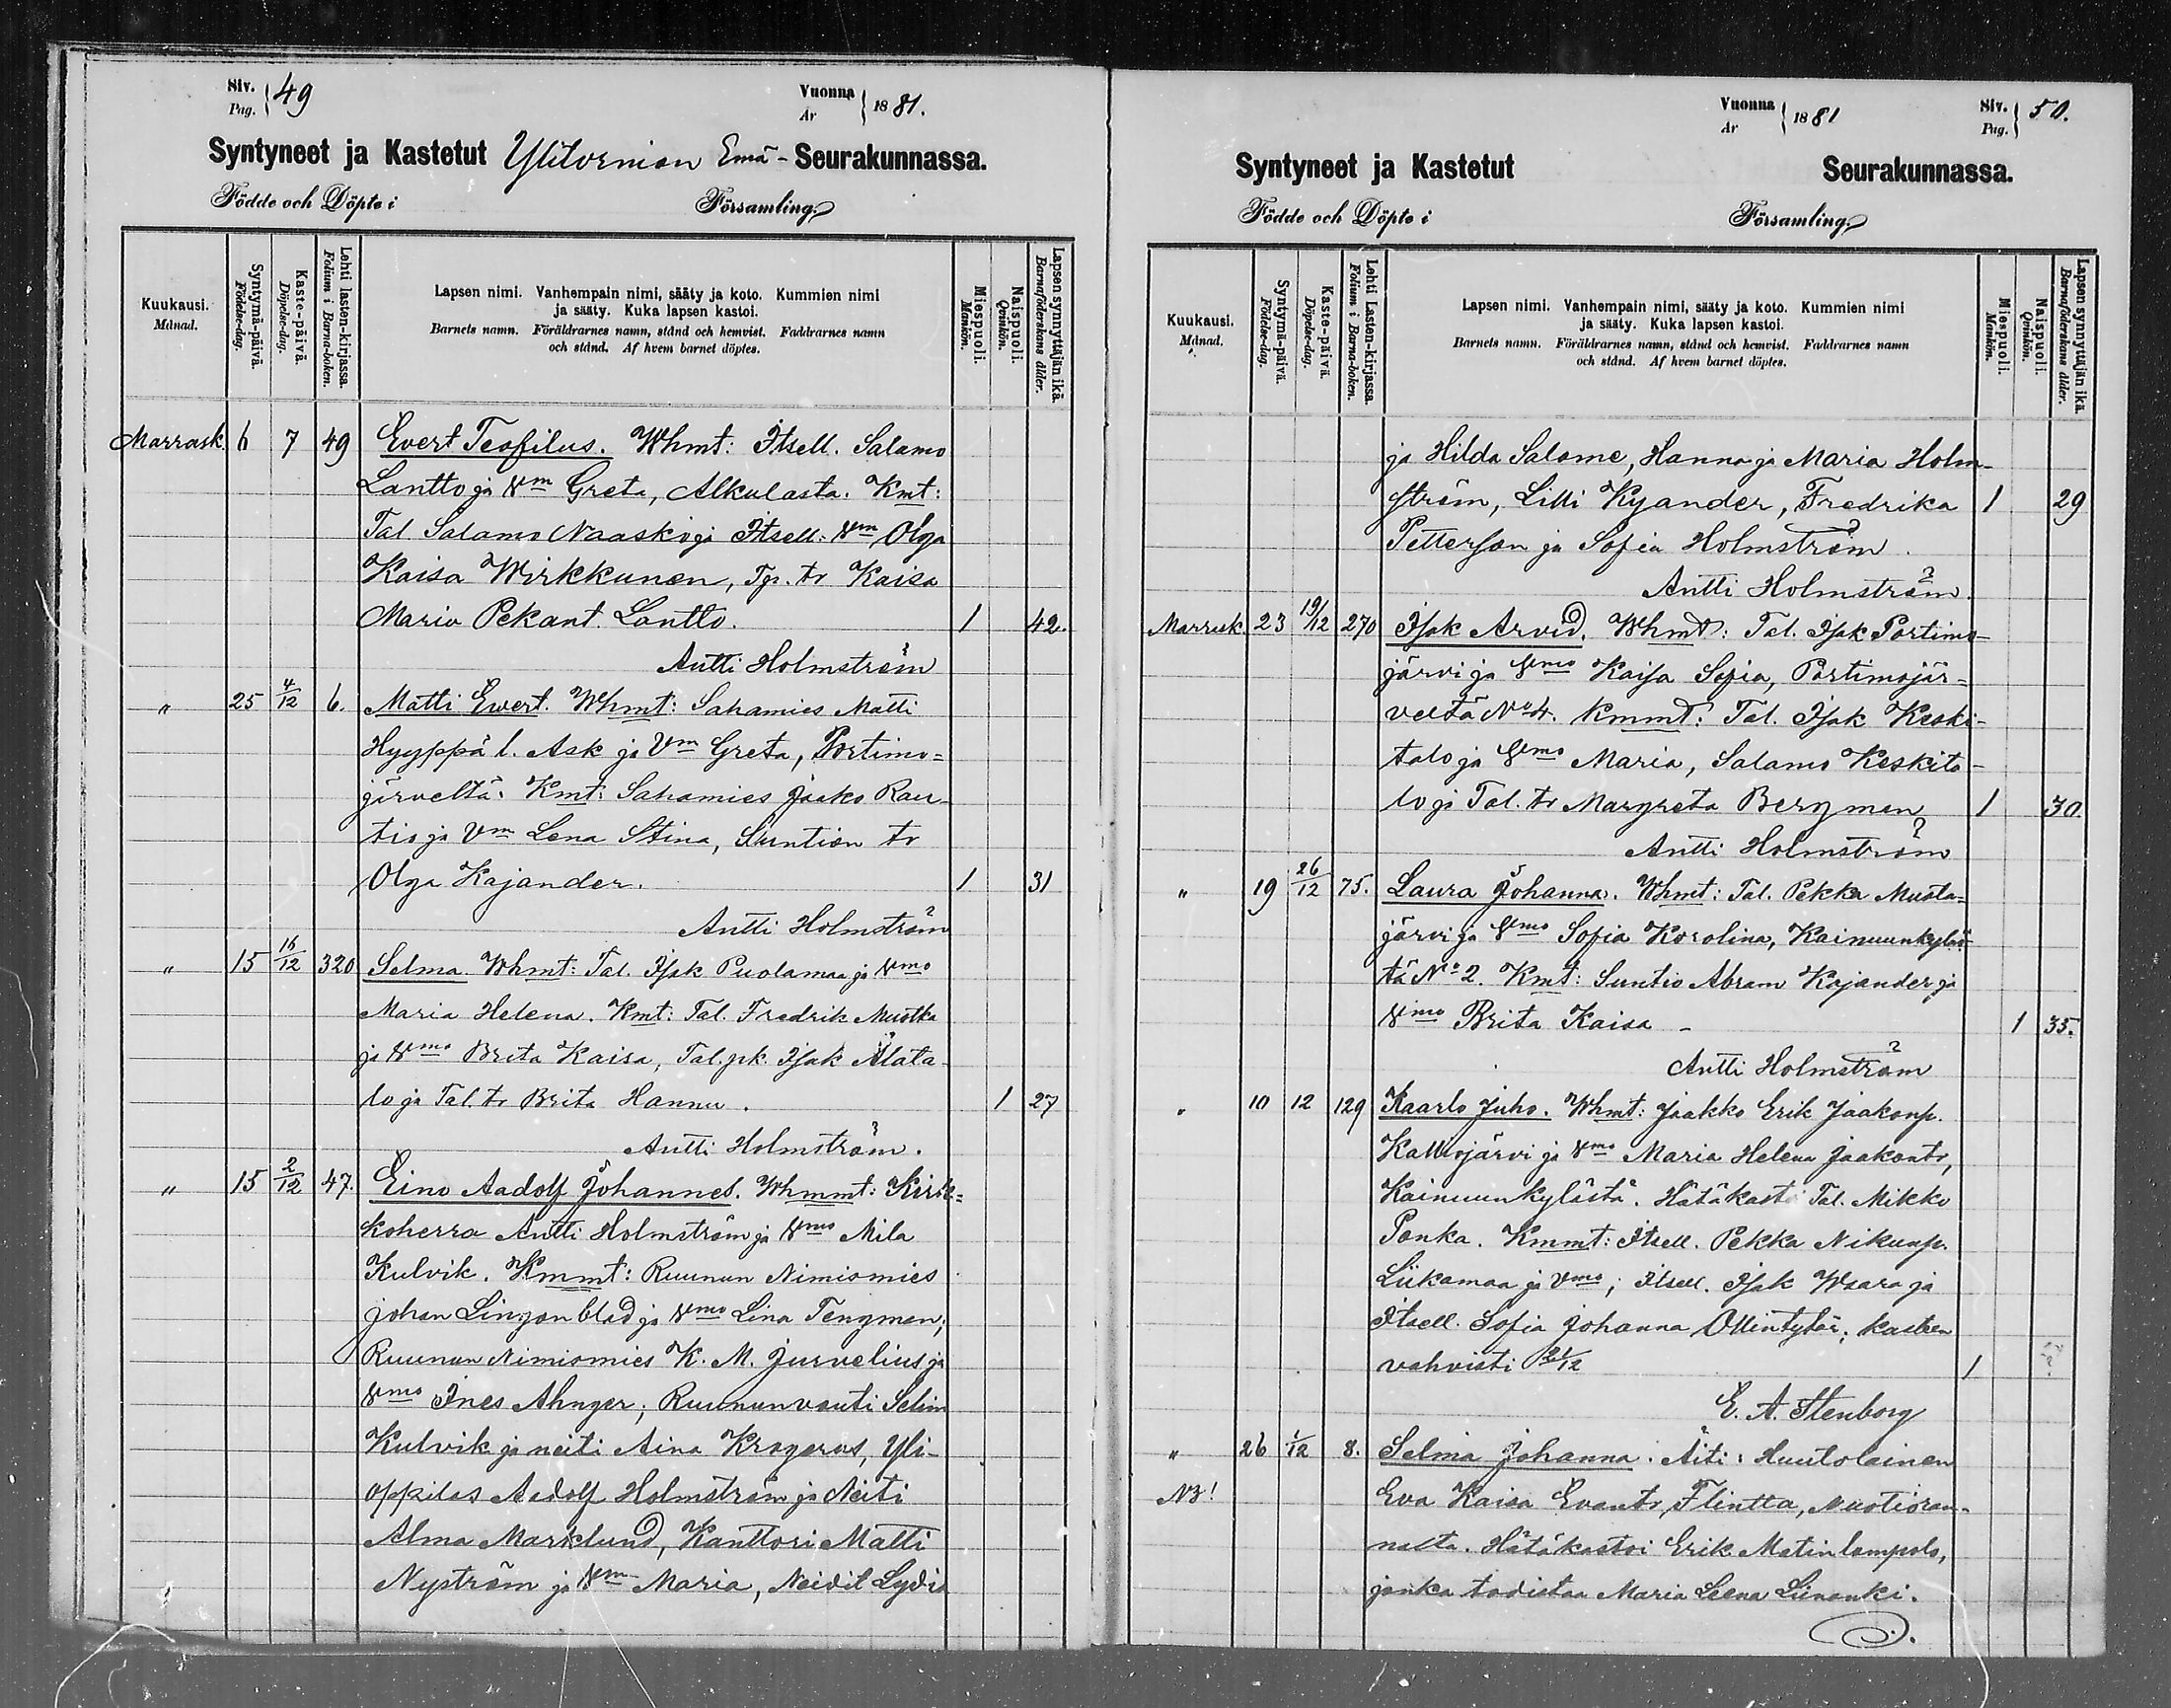 Siv. Pag. } 49
Vuonna År } 1881.
Syntyneet ja Kastetut Ylitornion Emä-Seurakunnassa.
Födde och Döpte i Församling.
Kuukausi. Månad.
Syntymä-päivä. Födelse-dag.
Kaste-päivä. Döpelse-dag.
Lehti lasten-kirjassa. Folium i Barna-boken.
Lapsen nimi. Vanhempain nimi, sääty ja koto. Kummien nimi
ja sääty. Kuka lapsen kastoi.
Barnets namn. Föräldrarnes namn, stånd och hemvist. Faddrarnes namn
och stånd. Af hvem barnet döptes.
Miespuoli. Mankön.
Naispuoli. Qvinkön.
Lapsen synnyttäjän ikä. Barnaföderskans ålder.
Marrask. 6 7 49 Evert Teofilus. Whmt: Itsell. Salamo
Lantto ja Vm Greta, Alkulasta. Kmt:
Tal. Salamo Naaski ja Itsell. Vm Olga
Kaisa Wirkkunen, Tp. tr Kaisa
Maria Pekant. Lantto. 1 42.
Antti Holmström
" 25 4/12 6. Matti Ewert. Whmt: Sahamies Matti
Hyyppä l. Ask ja Vm Greta, Portimo=
järveltä. Kmt: Sahamies Jaako Rau-
tio ja Vm Lena Stina, Suntion tr
Olga Kajander. 1 31
Antti Holmström
" 15 16/12 320 Selma. Whmt: Tal. Isak Puolamaa ja Vmo
Maria Helena. Kmt: Tal. Fredrik Muotka
ja Vmo Brita Kaisa, Tal. pk. Isak Alata-
lo ja Tal. tr Brita Hannu. 1 27
Antti Holmström.
" 15 2/12 47. Eino Aadolf Johannes. Whmmt: Kirk=
koherra Antti Holmström ja Vmo Mila
Kulvik. Kmmt: Ruunun Nimismies
Johan Lingonblad ja Vmo Lina Tengman;
Ruunun Nimismies K. M. Jurvelius ja
Vmo Ines Ahnger; Ruununvouti Selim
Kulvik ja neiti Aina Krogerus, Yli-
oppilas Aadolf Holmström ja Neiti
Alma Marklund, Kanttori Matti
Nyström ja Vm Maria, Neidit Lydia
Vuonna År } 1881
Siv. Pag. } 50.
Syntyneet ja Kastetut Seurakunnassa.
Födde och Döpte i Församling.
Kuukausi. Månad.
Syntymä-päivä. Födelse-dag.
Kaste-päivä. Döpelse-dag.
Lehti Lasten-kirjassa. Folium i Barna-boken.
Lapsen nimi. Vanhempain nimi, sääty ja koto. Kummien nimi
ja sääty. Kuka lapsen kastoi.
Barnets namn. Föräldrarnes namn, stånd och hemvist. Faddrarnes namn
och stånd. Af hvem barnet döptes.
Miespuoli. Mankön.
Naispuoli. Qvinkön.
Lapsen synnyttäjän ikä. Barnaföderskans ålder.
ja Hilda Salome, Hanna ja Maria Holm-
ström, Lilli Kyander, Fredrika 1 29
Petterson ja Sofia Holmström.
Antti Holmström.
Marrask 23 19/12 270 Isak Arvid. Whmt: Tal. Isak Portimo-
järvi ja Vmo Kaisa Sofia, Portimojär=
veltä No 4. Kmmt: Tal. Isak Keski-
talo ja Vmo Maria, Salamo Keskita-
lo ja Tal. tr Margreta Bergman 1 30.
Antti Holmström
" 19 26/12 75. Laura Johanna. Whmt: Tal. Pekka Musta=
järvi ja Vmo Sofia Korolina, Kainuunkyläs-
tä No 2. Kmt: Suntio Abram Kajander ja
Vmo Brita Kaisa - 1 35.
Antti Holmström
" 10 12 129 Kaarlo Juho. Whmt: Jaakko Erik Jaakonp.
Kalliojärvi ja Vmo Maria Helena Jaakontr,
Kainuunkylästä. Hätäkasti Tal. Mikko
Ponka. Kmmt: Itsell. Pekka Nikunp.
Liikamaa ja Vmo; Itsell. Isak Waara ja
Itsell. Sofia Johanna Ollintytär; kasteen
vahvisti 21/12 1
E. A. Stenborg
" 26 1/12 8. Selma Johanna. Äiti: Huutolainen
NB! Eva Kaisa Evantr, Flintta, Nuotioran-
nalta. Hätäkastoi Erik Matinlampolo,
jonka todistaa Maria Leena Liinanki.